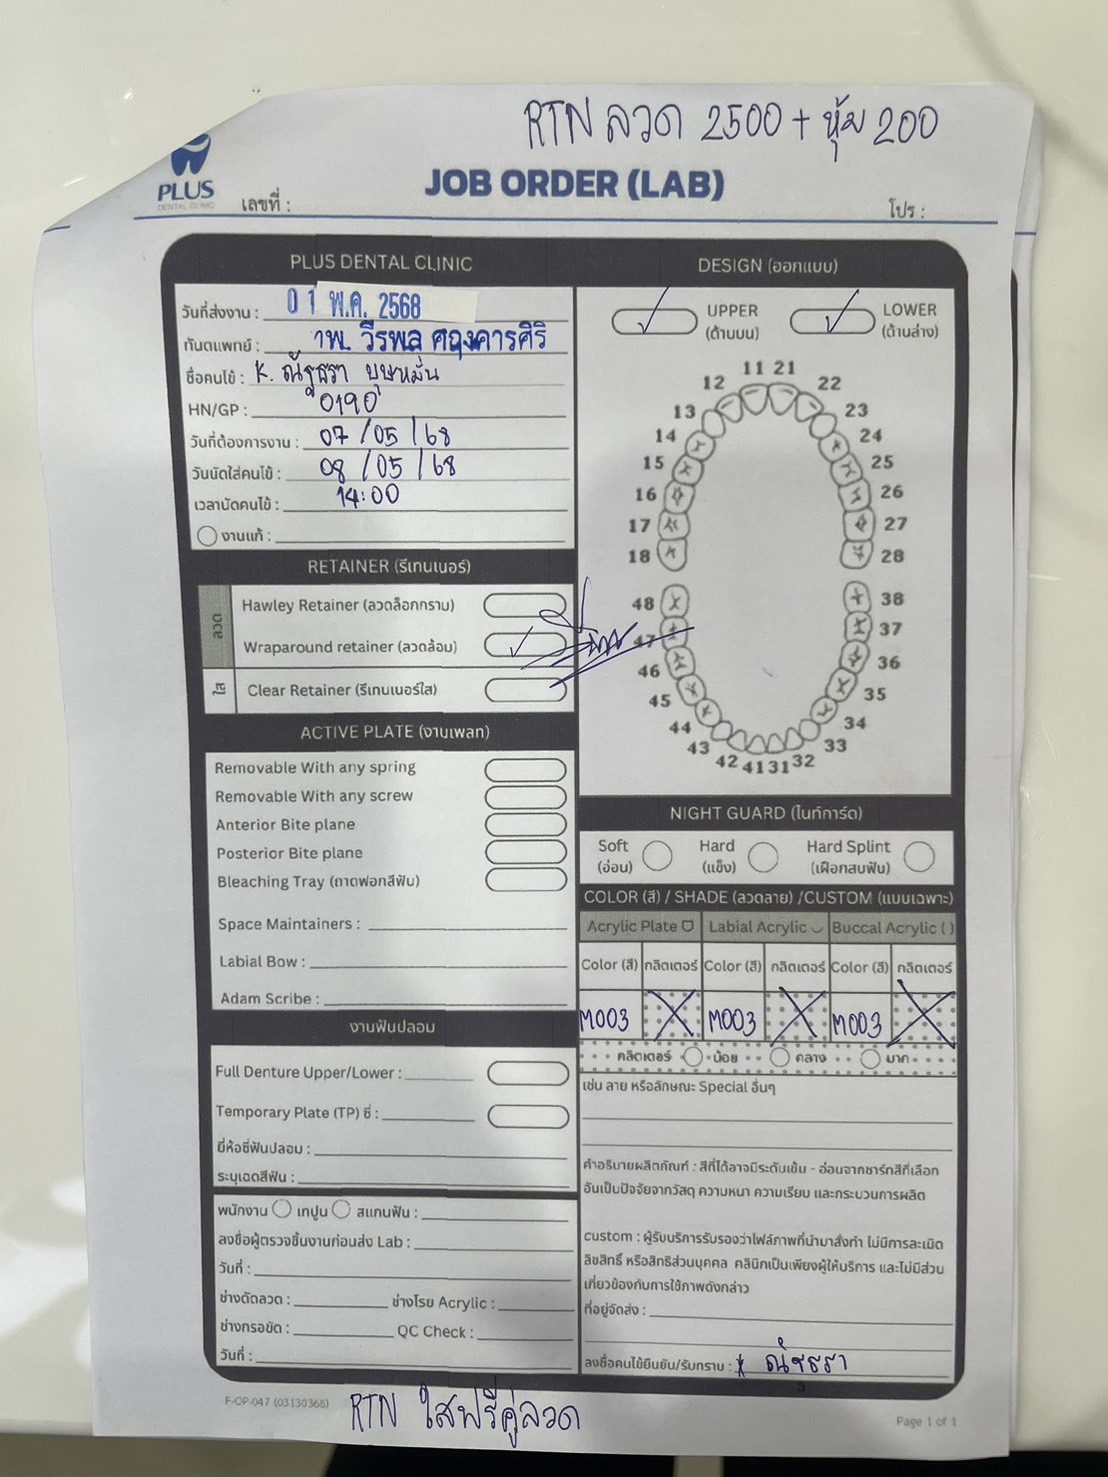 RTN ลวด 2500 + หุ้ม 200
PLUS
DENTAL CLINIC
เลขที่ :
JOB ORDER (LAB)
โปร :
PLUS DENTAL CLINIC
วันที่ส่งงาน : 01 พ.ค. 2568
ทันตแพทย์ : ทพ. วีรพล ศฤงคารศิริ
ชื่อคนไข้ : K. ณัฐธรา บุษหมั่น
HN/GP : 0190
วันที่ต้องการงาน : 07/05/68
วันนัดใส่คนไข้ : 08/05/68
เวลานัดคนไข้ : 14:00
งานแก้ :
RETAINER (รีเทนเนอร์)
ลวด
Hawley Retainer (ลวดล็อกกราม)
Wraparound retainer (ลวดล้อม)
ใส
Clear Retainer (รีเทนเนอร์ใส)
ACTIVE PLATE (งานเพลท)
Removable With any spring
Removable With any screw
Anterior Bite plane
Posterior Bite plane
Bleaching Tray (ถาดฟอกสีฟัน)
Space Maintainers :
Labial Bow :
Adam Scribe :
งานฟันปลอม
Full Denture Upper/Lower :
Temporary Plate (TP) ซี่ :
ยี่ห้อซี่ฟันปลอม :
ระบุเฉดสีฟัน :
พนักงาน เทปูน สแกนฟัน :
ลงชื่อผู้ตรวจชิ้นงานก่อนส่ง Lab :
วันที่ :
ช่างดัดลวด : ช่างโรย Acrylic :
ช่างกรอขัด : QC Check :
วันที่ :
DESIGN (ออกแบบ)
UPPER LOWER
(ด้านบน) (ด้านล่าง)
11 21
12 22
13 23
14 24
15 25
16 26
17 27
18 28
48 38
47 37
46 36
45 35
44 34
43 33
42 41 31 32
NIGHT GUARD (ไนท์การ์ด)
Soft Hard Hard Splint
(อ่อน) (แข็ง) (เฝือกสบฟัน)
COLOR (สี) / SHADE (ลวดลาย) /CUSTOM (แบบเฉพาะ)
Acrylic Plate Labial Acrylic Buccal Acrylic ( )
Color (สี) กลิตเตอร์ Color (สี) กลิตเตอร์ Color (สี) กลิตเตอร์
M003 M003 M003
กลิตเตอร์ น้อย กลาง มาก
เช่น ลาย หรือลักษณะ Special อื่นๆ
คำอธิบายผลิตภัณฑ์ : สีที่ได้อาจมีระดับเข้ม - อ่อนจากชาร์ทสีที่เลือก
อันเป็นปัจจัยจากวัสดุ ความหนา ความเรียบ และกระบวนการผลิต
custom : ผู้รับบริการรับรองว่าไฟล์ภาพที่นำมาสั่งทำ ไม่มีการละเมิด
ลิขสิทธิ์ หรือสิทธิส่วนบุคคล คลินิกเป็นเพียงผู้ให้บริการ และไม่มีส่วน
เกี่ยวข้องกับการใช้ภาพดังกล่าว
ที่อยู่จัดส่ง :
ลงชื่อคนไข้ยืนยัน/รับทราบ : * ณัฐธรา
F-OP-047 (03130368)
RTN ใสฟรีคู่ลวด
Page 1 of 1